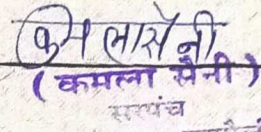 कमला सैनी
(कमला सैनी)
सरपंच